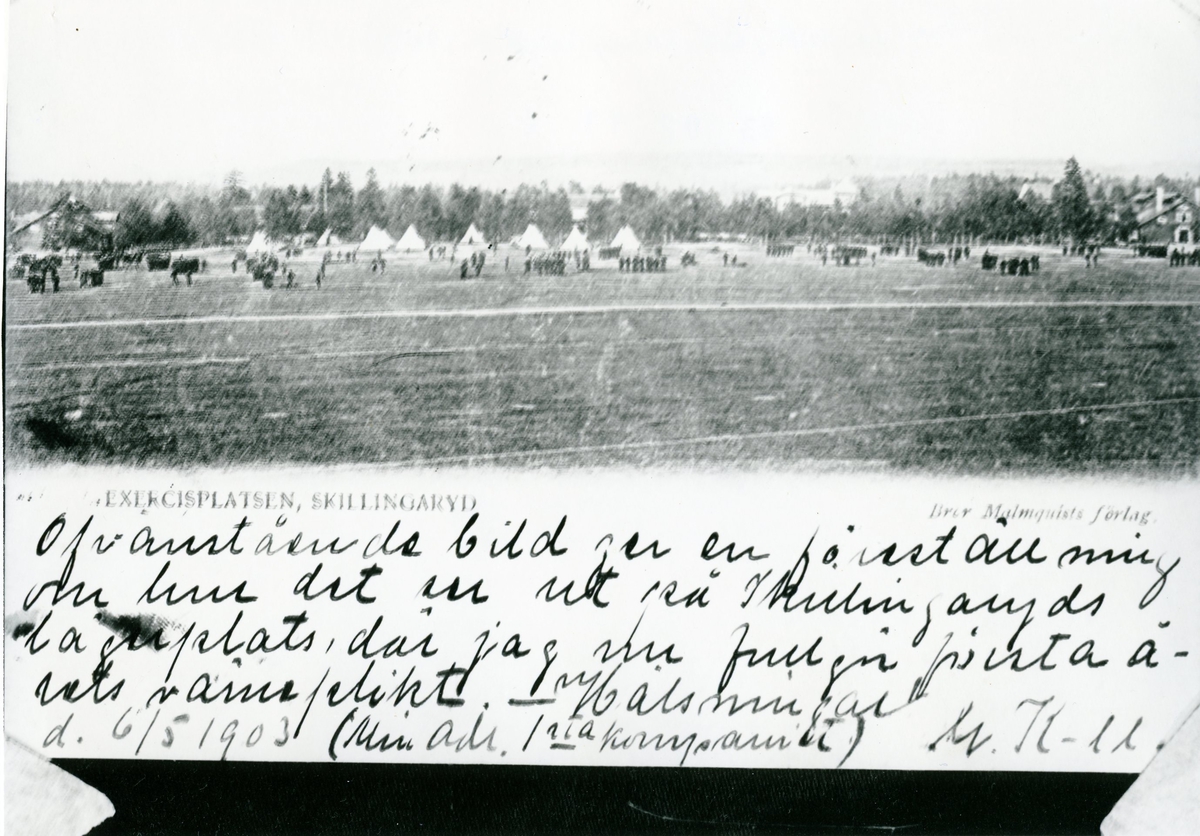 EXERCISPLATSEN, SKILLINGARYD
Brör Malmquists förlag.
Ofvanstående bild ger en föreställning
om huru det ser ut på Skillingaryds
lägerplats, där jag nu fullgör första å-
rets värneplikt. — Hälsningar
d. 6/5 1903 (Min adr. 1sta kompaniet) K-ll.